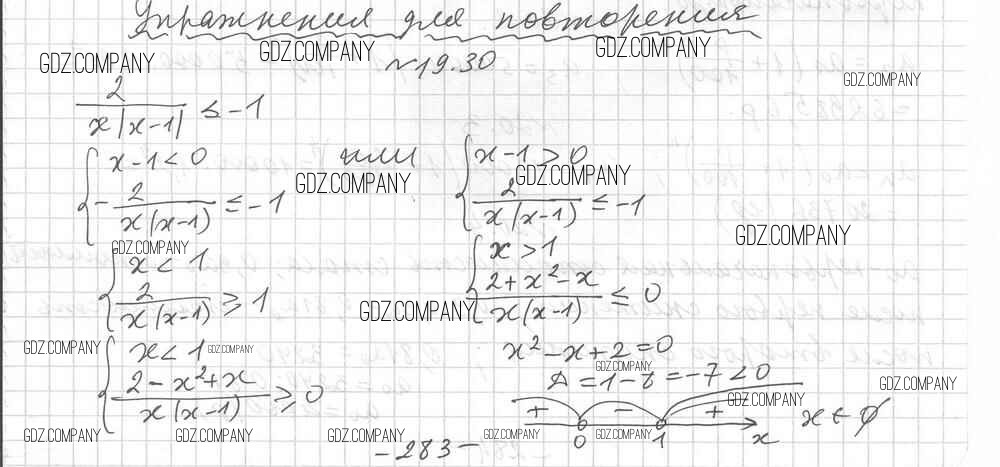 Упражнения для повторения
GDZ.COMPANY GDZ.COMPANY GDZ.COMPANY
№19.30
GDZ.COMPANY
2/(x|x-1|) ≤ -1
{ x-1<0 или { x-1>0
GDZ.COMPANY GDZ.COMPANY
{ -2/(x(x-1)) ≤ -1 { 2/(x(x-1)) ≤ -1
GDZ.COMPANY
GDZ.COMPANY
{ x<1 { x>1
{ 2/(x(x-1)) ≥ 1 { (2+x²-x)/(x(x-1)) ≤ 0
GDZ.COMPANY
GDZ.COMPANY { x<1 GDZ.COMPANY x²-x+2=0
{ (2-x²+x)/(x(x-1)) ≥ 0 GDZ.COMPANY
Δ=1-8=-7<0
GDZ.COMPANY
GDZ.COMPANY
+ - + x ∈ ∅
0 1 x
GDZ.COMPANY GDZ.COMPANY GDZ.COMPANY GDZ.COMPANY GDZ.COMPANY
-283-